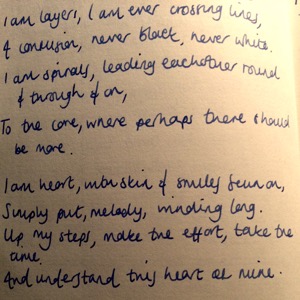 I am layers, I am ever crossing lines,
& confusion, never black, never white.
I am spirals, leading eachother round
& through & on,
To the core, where perhaps there should
be more.
I am heart, skin & smiles sewn on,
Simply put, melody, winding long.
Up my steps, make the effort, take the
time.
And understand this heart of mine.